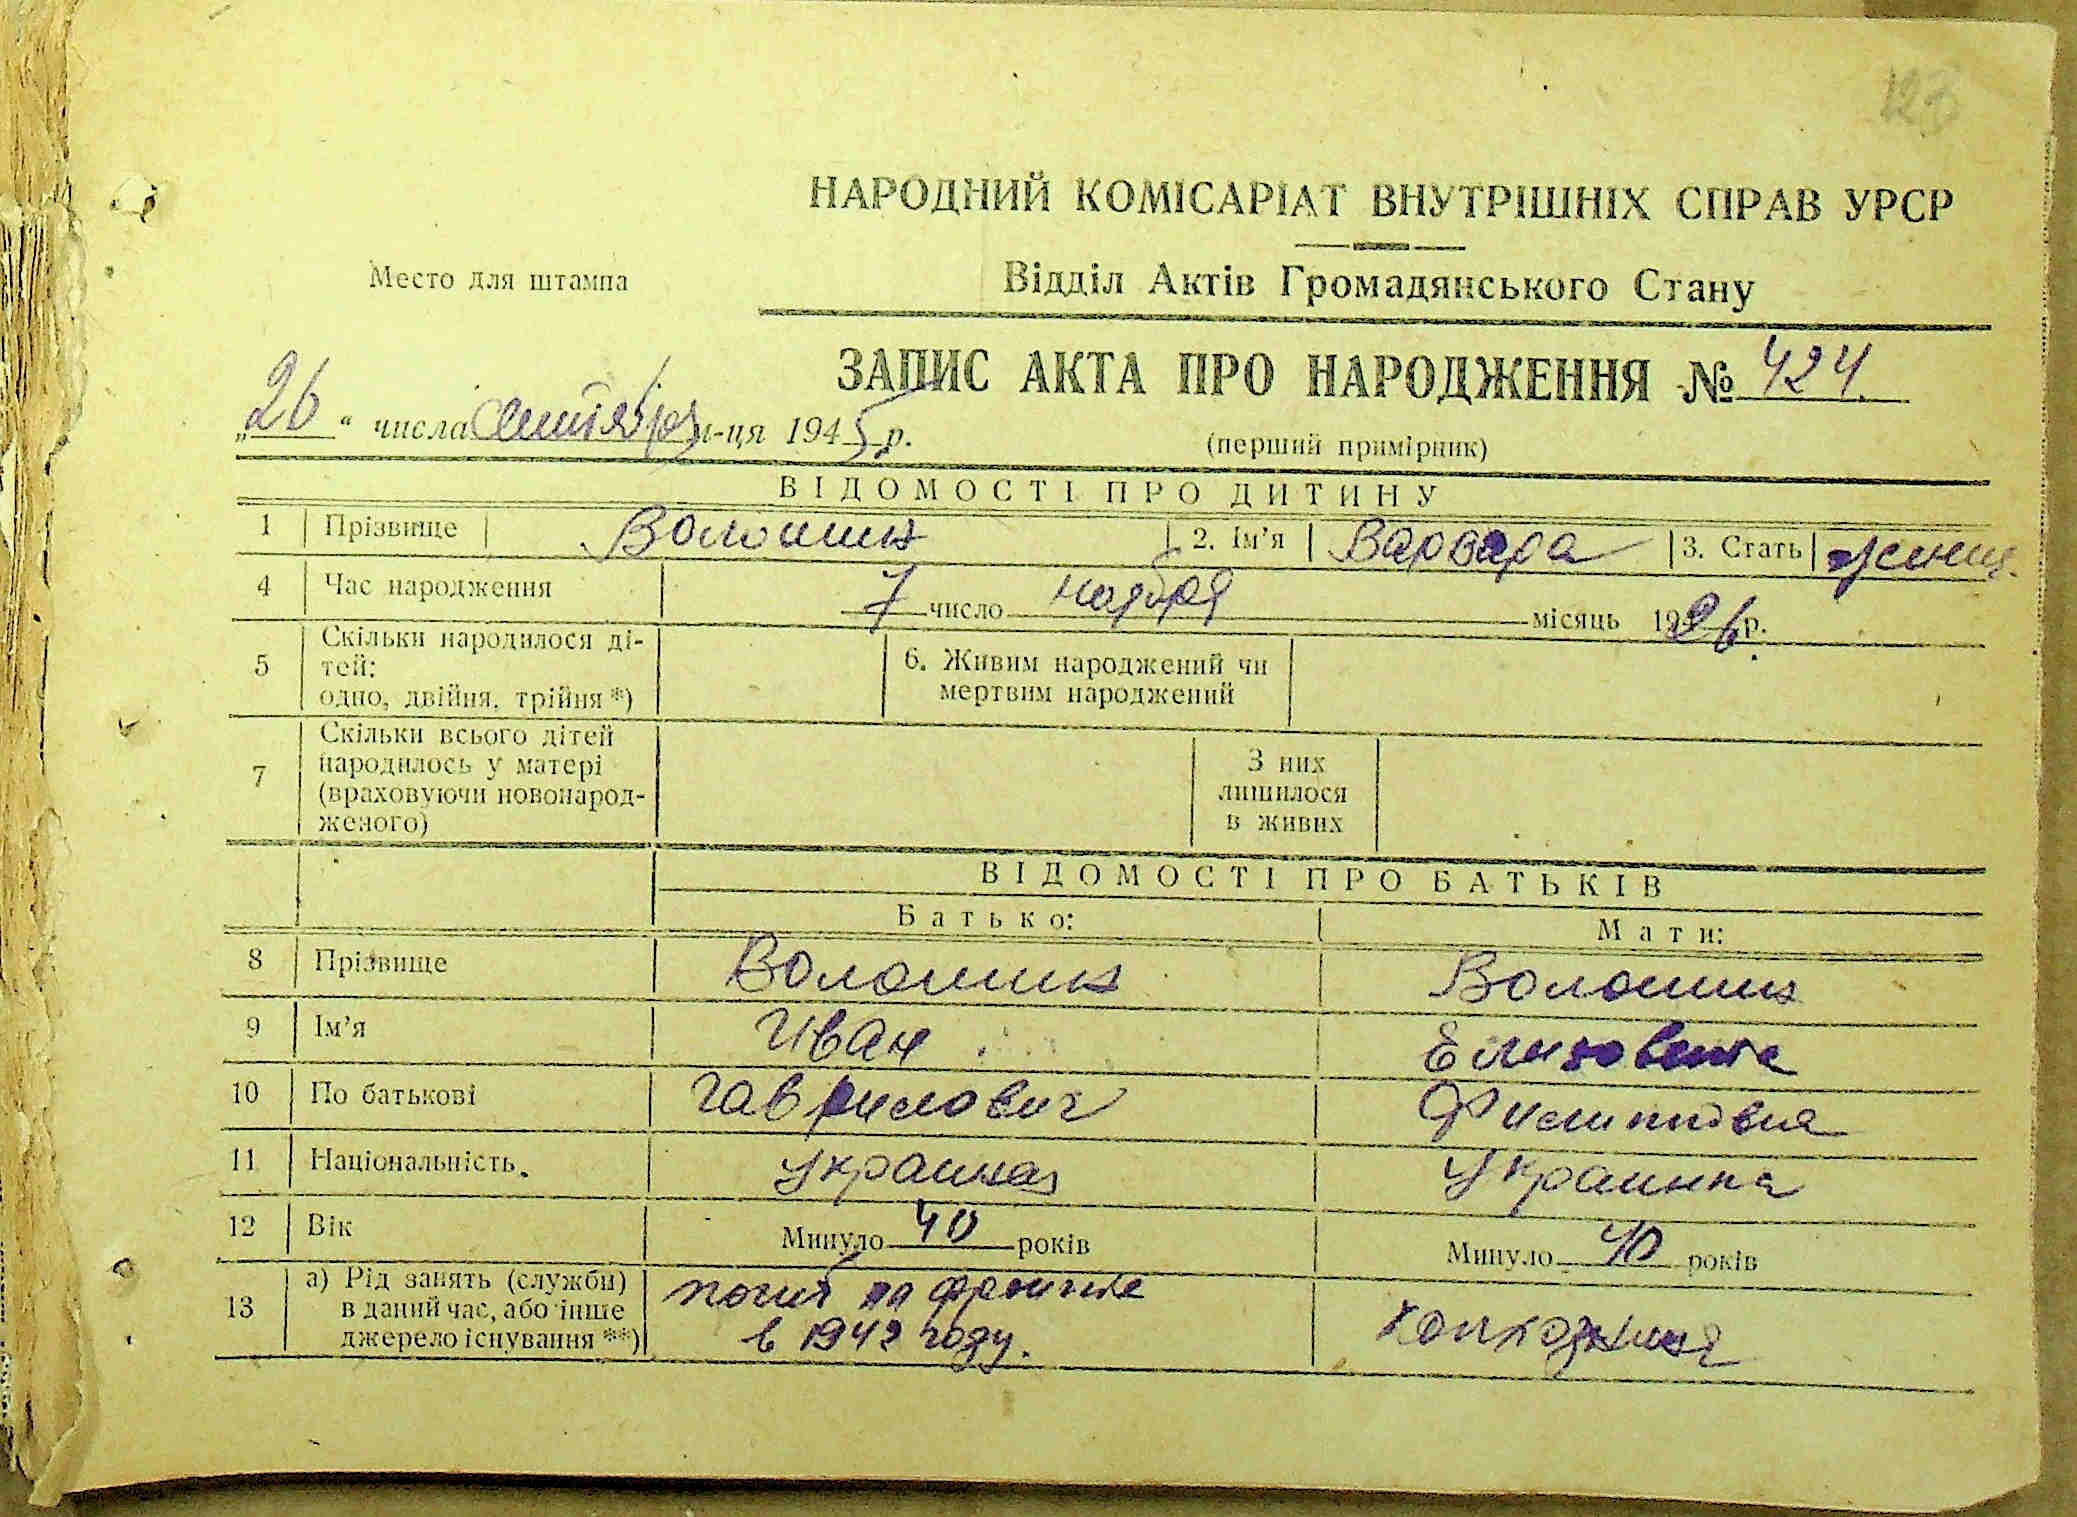 123
НАРОДНИЙ КОМІСАРІАТ ВНУТРІШНІХ СПРАВ УРСР
Место для штампа
Відділ Актів Громадянського Стану
ЗАПИС АКТА ПРО НАРОДЖЕННЯ № 424
„26“ числа сентября м-ця 1945 р.
(перший примірник)
ВІДОМОСТІ ПРО ДИТИНУ
1 Прізвище Волошин 2. Ім’я Варвара 3. Стать женщ.
4 Час народження 7 число ноября місяць 1926 р.
5 Скільки народилося ді-
тей:
одно, двійня, трійня *)
6. Живим народжений чи
мертвим народжений
7 Скільки всього дітей
народилось у матері
(враховуючи новонарод-
женого)
З них
лишилося
в живих
ВІДОМОСТІ ПРО БАТЬКІВ
Батько: Мати:
8 Прізвище Волошин Волошин
9 Ім’я Иван Елизовета
10 По батькові Гаврилович Филиповна
11 Національність. Украинец Украинка
12 Вік Минуло 40 років Минуло 40 років
13 а) Рід занять (служби)
в даний час, або інше
джерело існування **)
погиб на фронте
в 1942 году.
колхозница